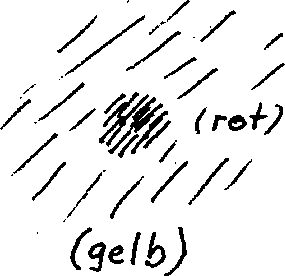 (rot)
(gelb)